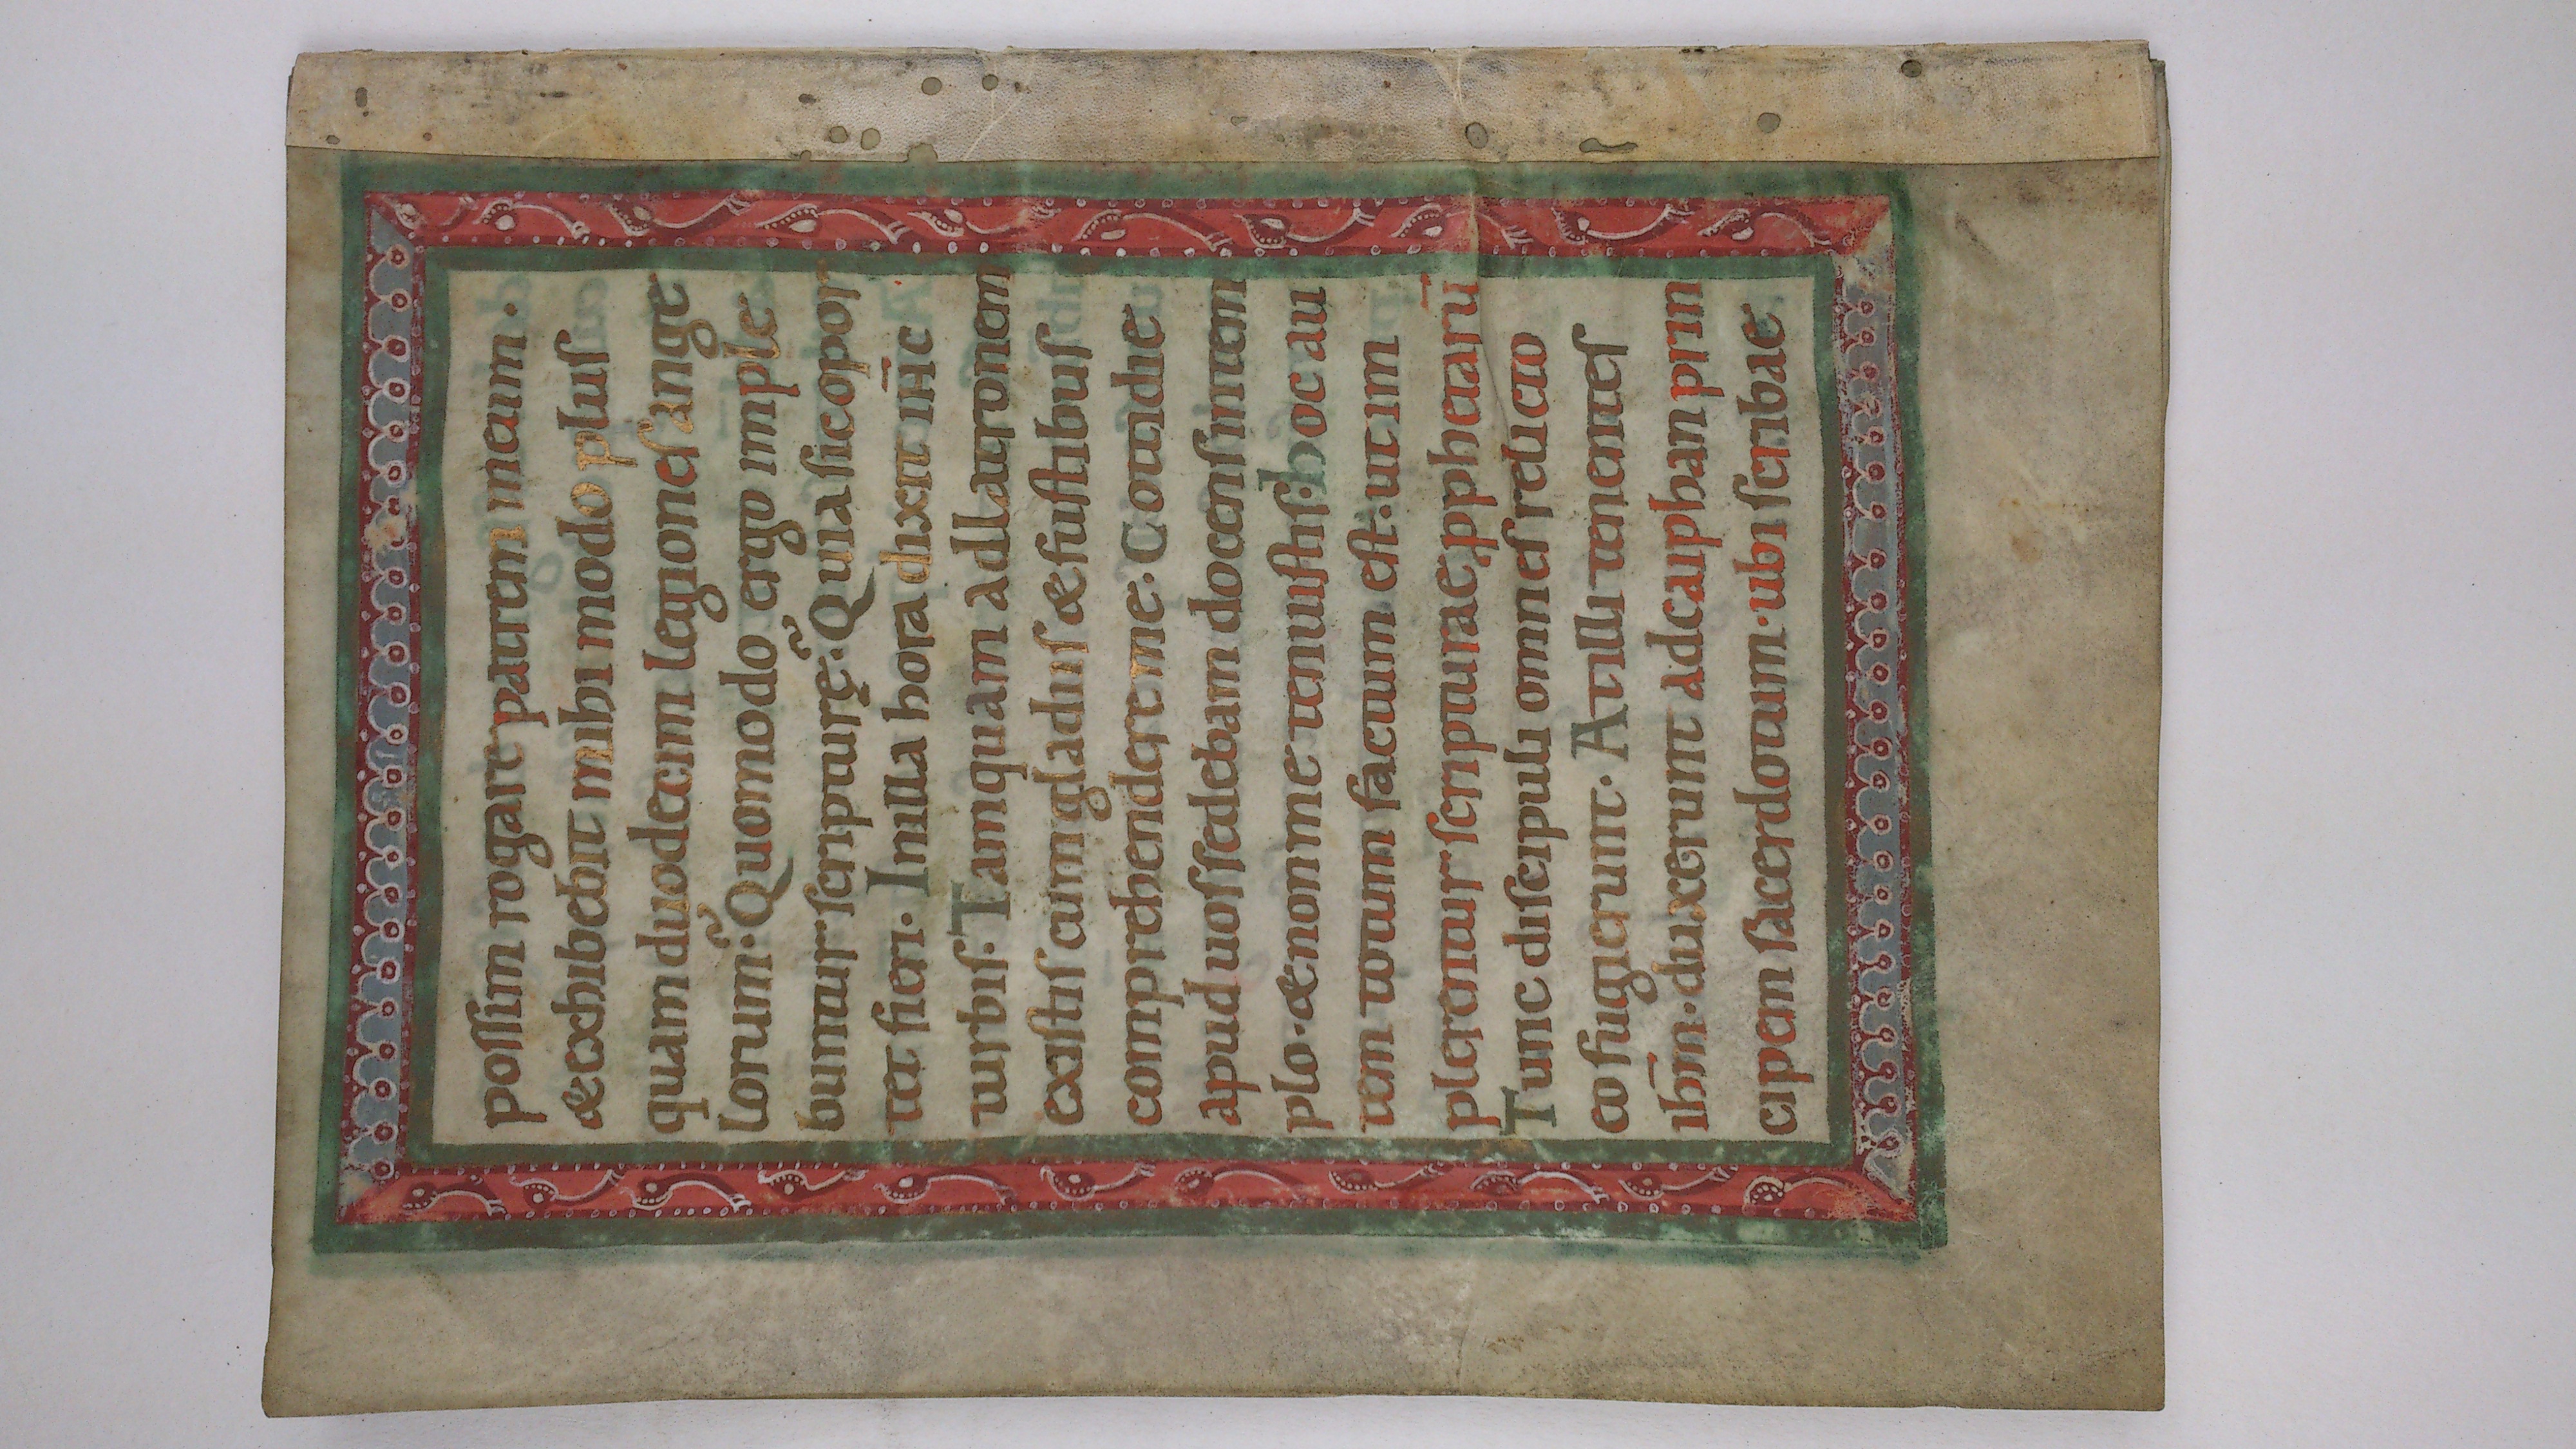 possim rogare patrem meum.
& exhibebit mihi modo plus
quam duodecim legiones ange
lorum. Quomodo ergo imple
buntur scripturę. Quia sic opor
tet fieri. In illa hora dixit ihc̄
turbis. Tamquam ad latronem
existis cum gladiis & fustibus
comprehendere me. Cotidie
apud uos sedebam docens in tem
plo. & non me tenuistis. hoc au
tem totum factum est. ut im
plerentur scripturae pphetarū
Tunc discipuli omnes relicto
eo fugierunt. At illi tenentes
ihm̄. duxerunt ad caiphan prin
cipem sacerdotum. ubi scribae